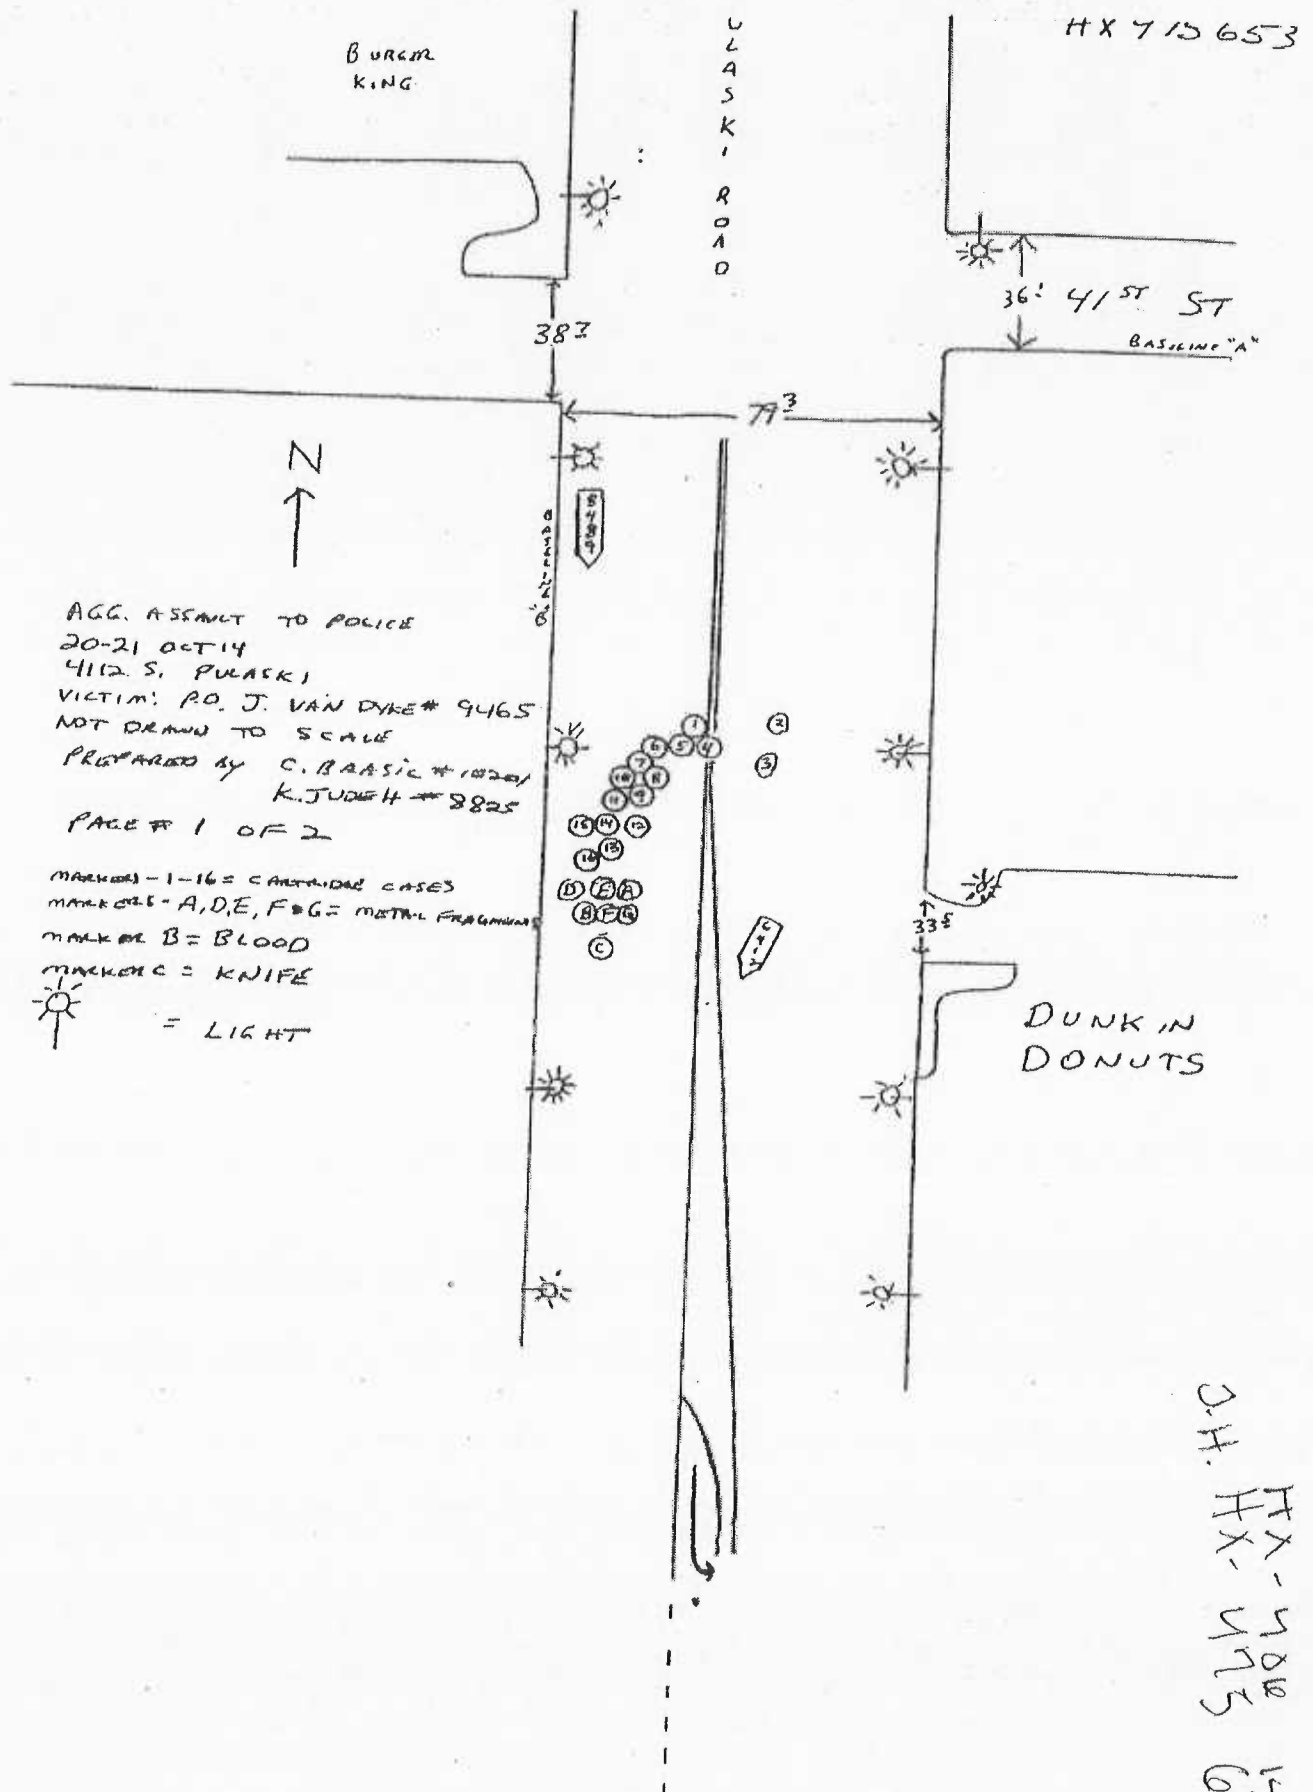 HX 715653
BURGER
KING
ULASKI ROAD
36' 41ST ST
BASELINE "A"
387
793
N
BASELINE
"B"
AGG. ASSAULT TO POLICE
20-21 OCT 14
4112 S. PULASKI
VICTIM: P.O. J. VAN DYKE # 9465
NOT DRAWN TO SCALE
PREPARED BY C. BAASIC #
K. JUDEH # 8825
PAGE # 1 OF 2
MARKERS - 1-16 = CARTRIDGE CASES
MARKERS - A, D, E, F & G = METAL FRAGMENTS
MARKER B = BLOOD
MARKER C = KNIFE
= LIGHT
1 2
6 5 4
7 3
10 8
11 9
15 14 12
16 13
D E A
B F G
C
335
DUNKIN
DONUTS
J.H. HX-475
HX-